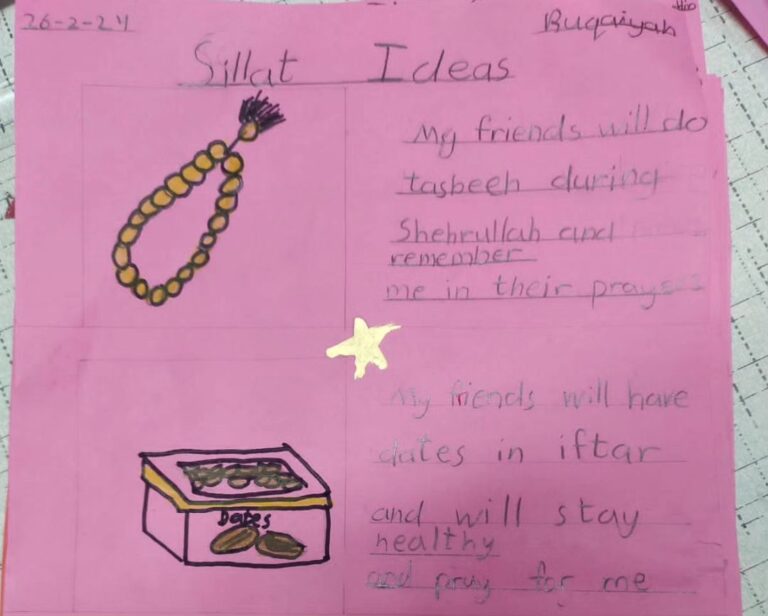 26-2-24
Buqaiyah
Sillat Ideas
My friends will do
tasbeeh during
Shehrullah and
remember
me in their prayers
My friends will have
dates in iftar
Dates
and will stay
healthy
and pray for me